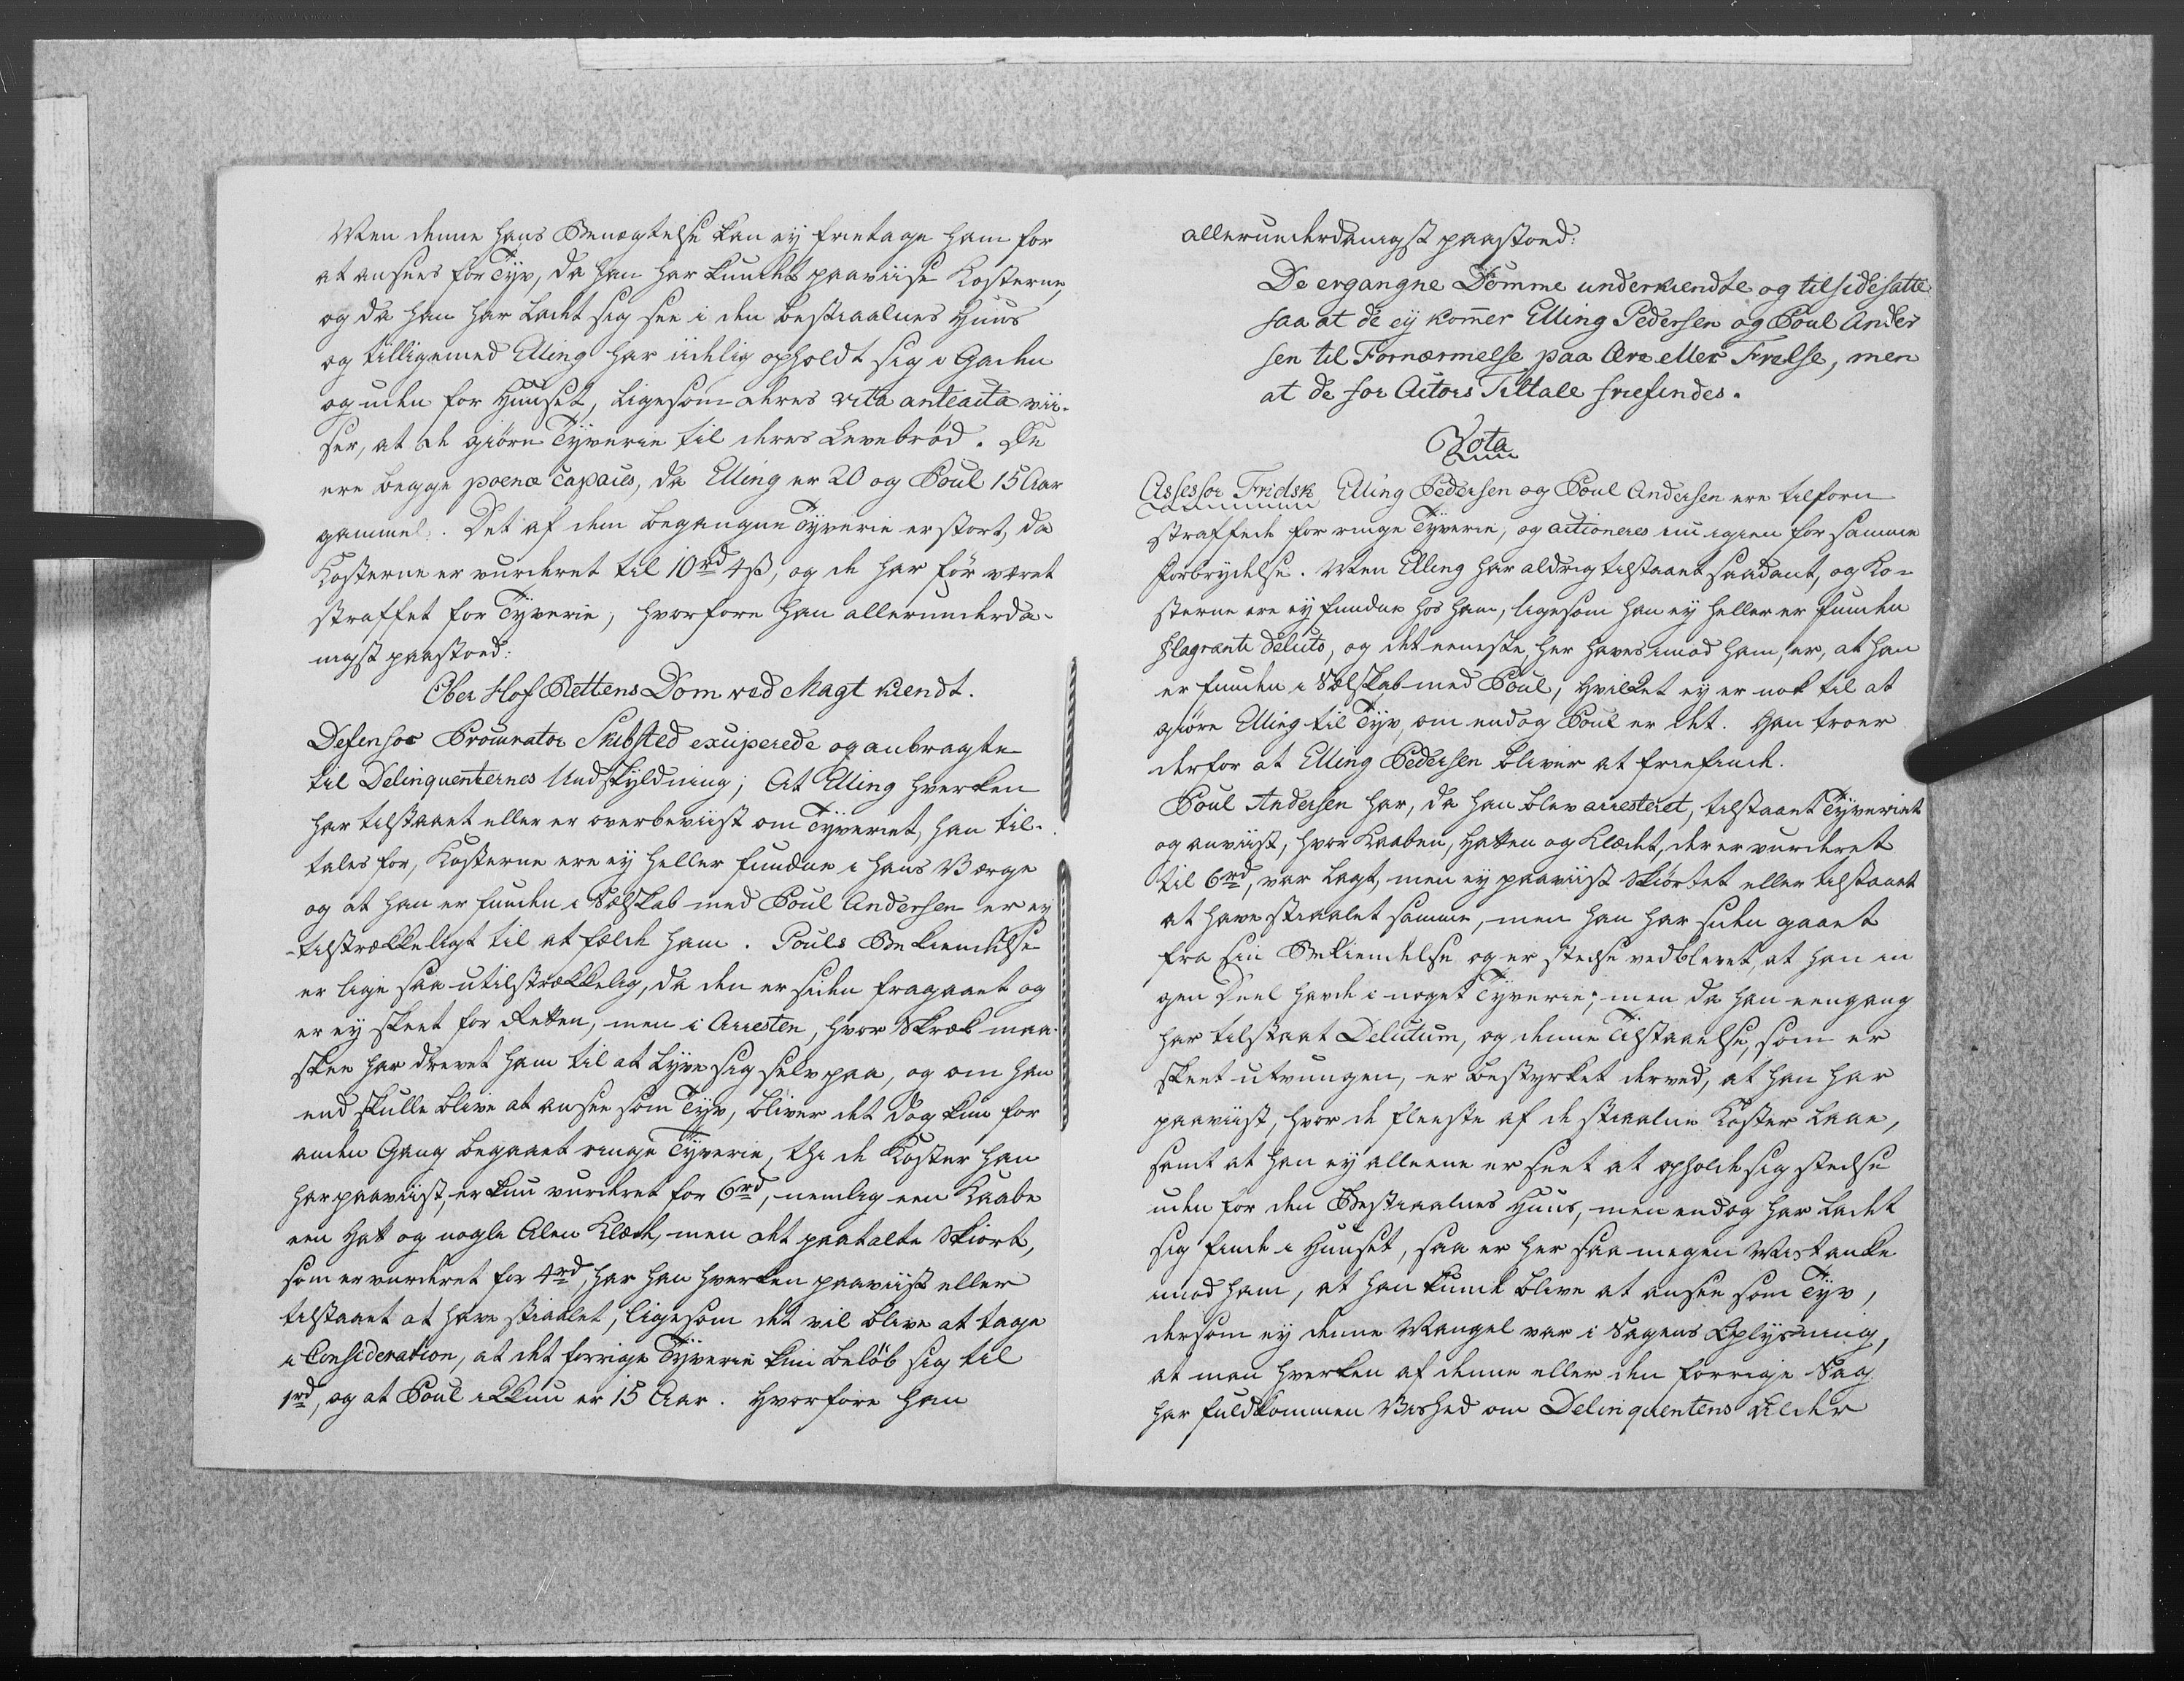 Men denne hans Benægtelse kan ey fritage ham for
at ansees for Tÿv, da han har kundet paaviise Kosterne,
og da han har ladet sig see i den bestiaalnes Huus
og tilligemed Elling har iidelig opholdt sig i Gaden
og uden for Huuset, ligesom deres vita anteacta vii-
ser, at de giøre Tÿverie til deres Levebrød. De
ere begge poenæ capaces, da Elling er 20 og Poul 15 Aar
gammel. Det af dem begangne Tÿverie er stort, da
Kosterne er vurderet til 10rd 4ß, og de har før været
straffet for Tyverie, hvorfore han allerunderda-
nigst paastoed:
Ober Hof Rettens Dom ved Magt kiendt.
Defensor Procurator Skibsted exciperede og anbragte
til Delinquenternes Undskyldning; At Elling hverken
har tilstaaet eller er overbeviist om Tÿveriet, han til-
tales for, Kosterne ere ey heller fundne i hans Værge
og at han er funden i Selskab med Poul Andersen er ey
tilstrækkeligt til at fælde ham. Pouls Bekiendelse
er lige saa utilstrækkelig, da den er siden fragaaet og
er ey skeet for Retten, men i Arresten, hvor Skræk maa-
skee har drevet ham til at lyve sig selv paa, og om han
end skulle blive at ansee som Tÿv, bliver det dog kun for
anden Gang begaaet ringe Tÿverie, thi de Koster han
har paaviist, er kun vurderet for 6rd, nemlig een Kaabe
een Hat og nogle Alen Klæde, men det paatalte Skiørt,
som er vurderet for 4rd, har han hverken paaviist eller
tilstaaet at have stiaalet, ligesom det vil blive at tage
i Consideration, at det forrige Tÿverie kun beløb sig til
1rd, og at Poul ikkun er 15 Aar. Hvorfore han
allerunderdanigst paastoed:
De ergangne Domme underkiendte og tilsidesatte
saa at de eÿ komer Elling Pedersen og Poul Ander
sen til Fornærmelse paa Ære eller Frelse, men
at de for Actors Tiltale friefindes.
Vota
Assessor Fridsk, Elling Pedersen og Poul Andersen ere tilforn
straffede for ringe Tÿverie, og actioneres nu igien for samme
Forbrydelse. Men Elling har aldrig tilstaaet saadant, og Ko-
sterne ere ey fundne hos ham, ligesom han ey heller er funden
flagrante delicto, og det eeneste, her haves imod ham, er, at han
er funden i Selskab med Poul, hvilket ey er nok til at
giøre Elling til Tÿv, om endog Poul er det. Han troer
derfor at Elling Pedersen bliver at friefinde.
Poul Andersen har, da han blev arresteret, tilstaaet Tÿveriet
og anviist, hvor Kaaben, Hatten og Klædet, der er vurderet
til 6rd, var lagt, men ey paaviist Skiørtet eller tilstaaet
at have stiaalet samme, men han har siden gaaet
fra sin Bekiendelse og er stedse vedblevet, at han in
gen Deel havde i noget Tÿverie; men da han eengang
har tilstaaet Delictum, og denne Tilstaaelse, som er
skeet utvungen, er bestyrket derved, at han har
paaviist, hvor de fleeste af de stiaalne Koster laae,
samt at han ey alleene er seet at opholde sig stedse
uden for den Bestiaalnes Huus, men endog har ladet
sig finde i Huuset, saa er her saa megen Mistanke
imod ham, at han kunde blive at ansee som Tÿv,
dersom ey denne Mangel var i Sagens Oplysning,
at man hverken af denne eller den forrige Sag
har fuldkommen Vished om Delinquentens Alder